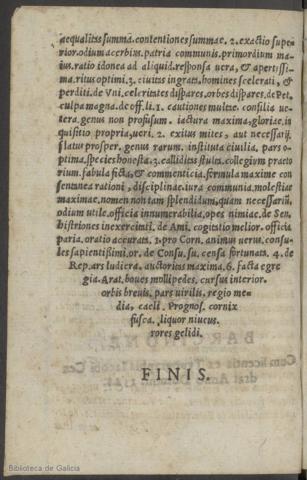 aequalitas summa. contentiones summae. 2. exactio supe
rior. odium acerbius. patria communis. primordium ma
ius. ratio idonea ad aliquid. responsa uera, & apertissi-
ma. ritus optimi. 3. ciuitas ingrata. homines scelerati, &
perditi. de Vni. celeritates dispares. orbes dispares. de Pet.
culpa magna. de off. li. 1. cautiones multae. consilia ue-
tera. genus non profusum. iactura maxima, gloriae. in
quisitio propria, ueri. 2. exitus mites, aut necessarij.
flatus prosper. genus rarum. instituta ciuilia, pars o-
ptima. species honesta. 3. calliditas stulta. collegium praeto
rium. fabula ficta, & commenticia. formula maxime con
sentanea rationi, disciplinae. iura communia. molestiae
maximae. nomen non tam splendidum, quam necessariū,
odium utile. officia innumerabilia. opes nimiae. de Sen.
histriones inexercitati. de Ami. cogitatio melior. officia
paria. oratio accurata. 1. pro Corn. animus uerus. consu-
les sapientißimi. or. de Consu. su. censa fortunata. 4. de
Rep. ars ludicra. auctoritas maxima. 6. facta egre
gia. Arat. boues mollipedes. cursus interior.
orbis breuis. pars uirilis. regio me
dia, caeli. Prognos. cornix
fusca. liquor niueus.
rores gelidi.
FINIS.
Biblioteca de Galicia